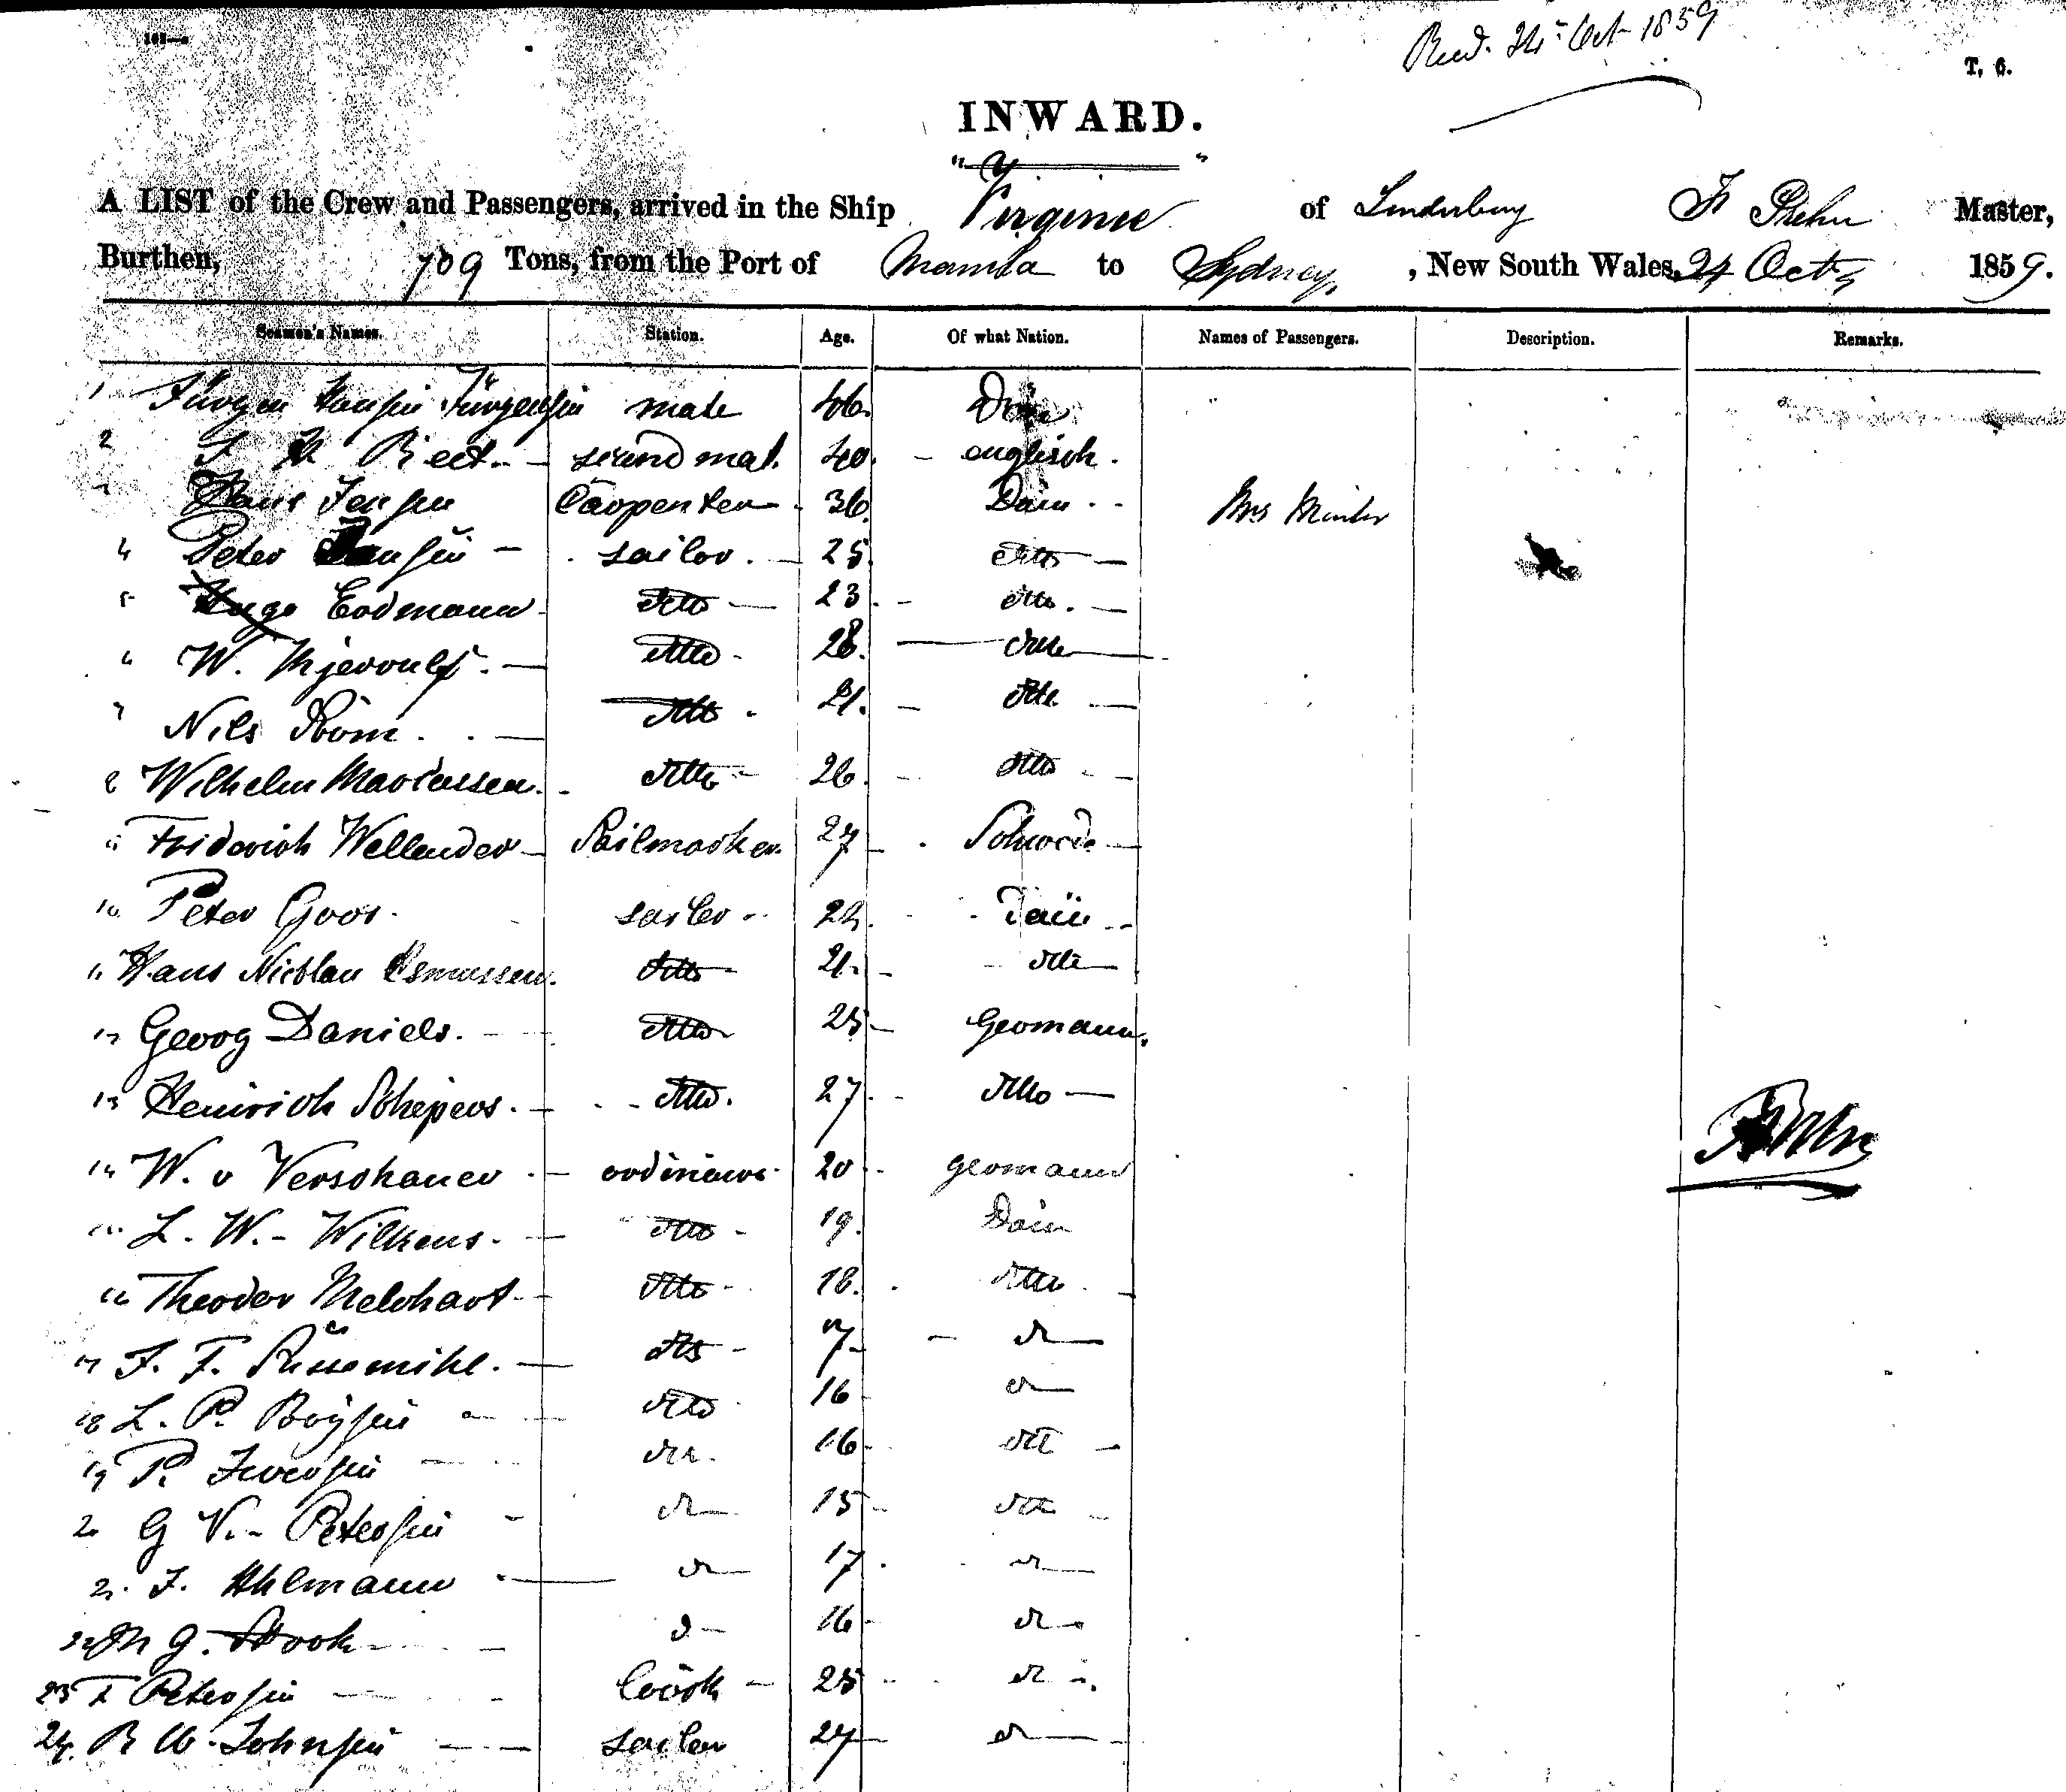 24th Oct 1859
T, 6.
INWARD.
A LIST of the Crew and Passengers, arrived in the Ship "Virginie" of F Prehn Master,
Burthen, 709 Tons, from the Port of Manila to Sydney, New South Wales, 24 Oct 1859.
Seamen's Names. Station. Age. Of what Nation. Names of Passengers. Description. Remarks.
1 Jürgen Hansen Jürgensen mate 46. Däin
2 second mat. 40. englisch.
Hans Jensen Carpenter 36. Däin Mrs
4 Peter Hansen sailor. 25. ditto
5 Hugo Erdmann ditto 23. ditto
6 W. Thjeroulf ditto 28. ditto
7 Nils ditto 21. ditto
8 Wilhelm Marcussen ditto 26. ditto
9 Friderich Wellender Sailmacker 27 Schwede
10 Peter Goos sailor 22. Däin
11 Hans Nicolau Asmussen. ditto 21. ditto
12 Georg Daniels. ditto 25 Germann.
13 Heinrich Schepers. ditto. 27. ditto
14 W. v Verschauer ordinair 20 germann
15 L. W. Wilkens. ditto 19. Däin
16 Theodor Melchart ditto 18. ditto
17 J. F. Rüssemihl. ditto 17 d
18 L. P. Boÿsen ditto 16 d
19 P. Iwersen ditt. 16 ditt
20 G N. Petersen d 15 ditt
21. J. Ahlmann d 17 d
22 M G. d 16 d
23 F Petersen Coock 25 d
24. R W. Johnsen sailor 27 d